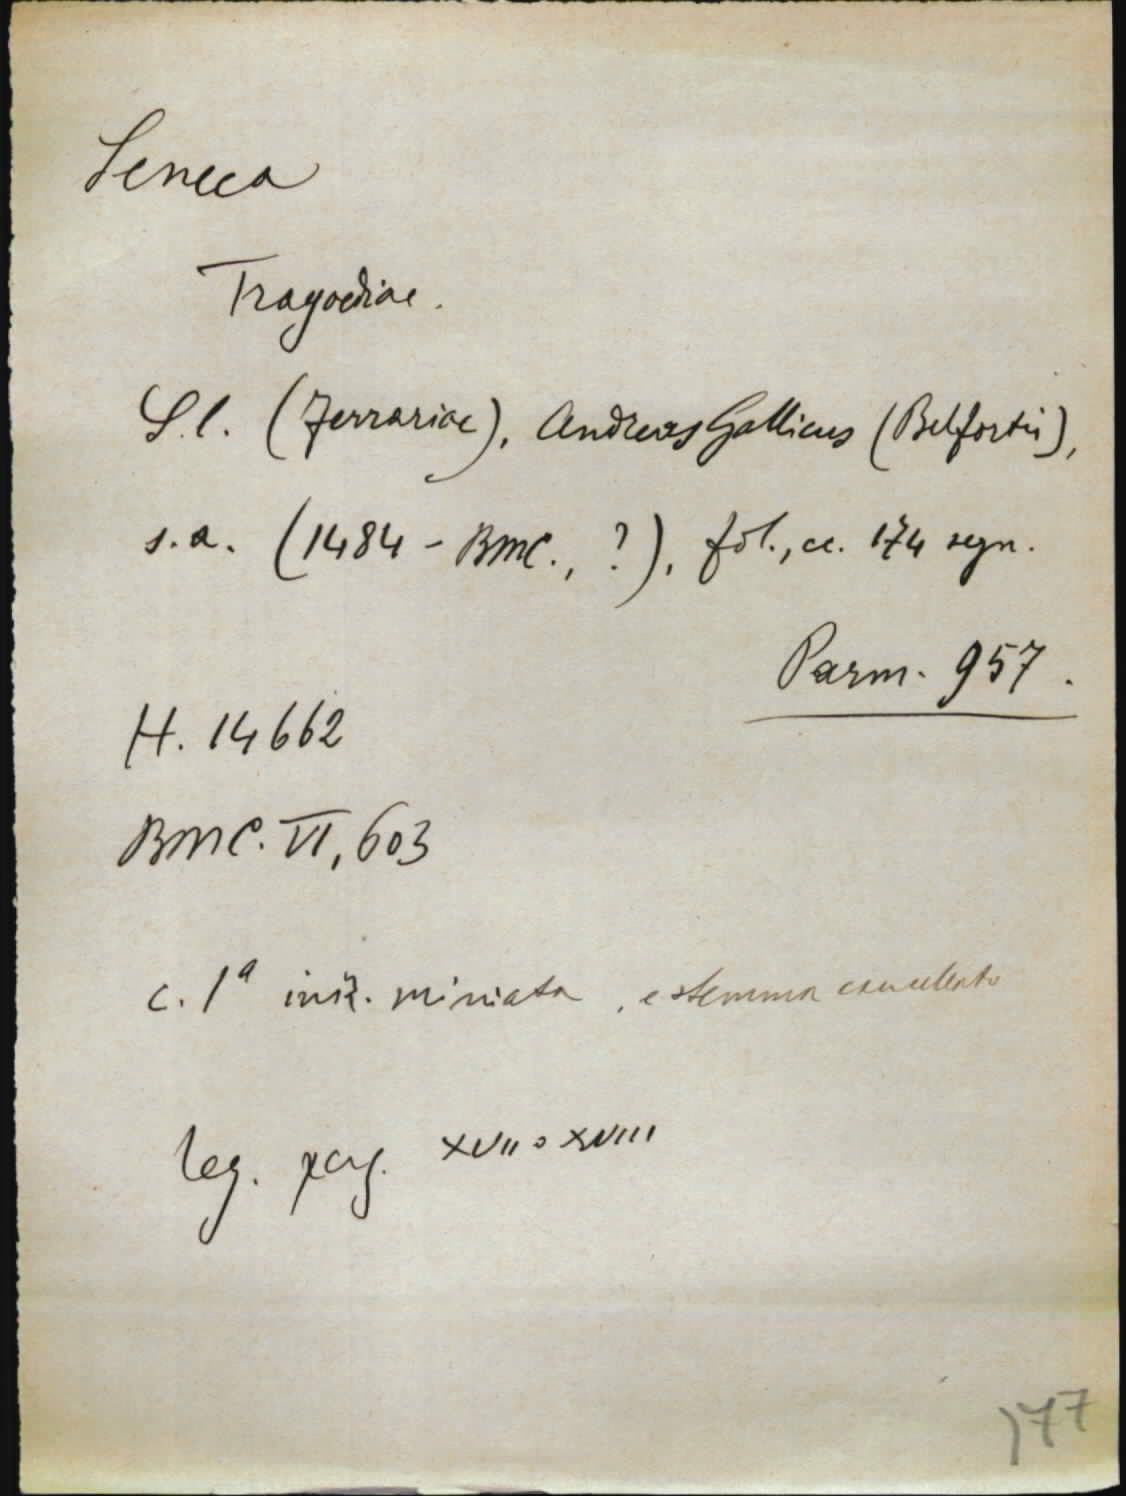 Seneca
Tragoediae.
S.l. (Ferrariae), Andreas Gallicus (Belfortis),
s.a. (1484 - BMC., ?), fol., cc. 174 segn.
Parm. 957.
H. 14662
BMC. VI, 603
c. 1ª iniz. miniata, e stemma cancellato
leg. perg. XVII o XVIII
177